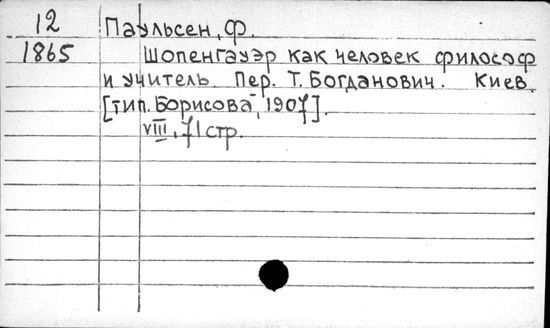 12 Паульсен, Ф.
1865 Шопенгауэр как человек философ
и учитель. Пер. Т. Богданович. Киев.
[тип. Борисова, 1907].
VIII, 71 стр.